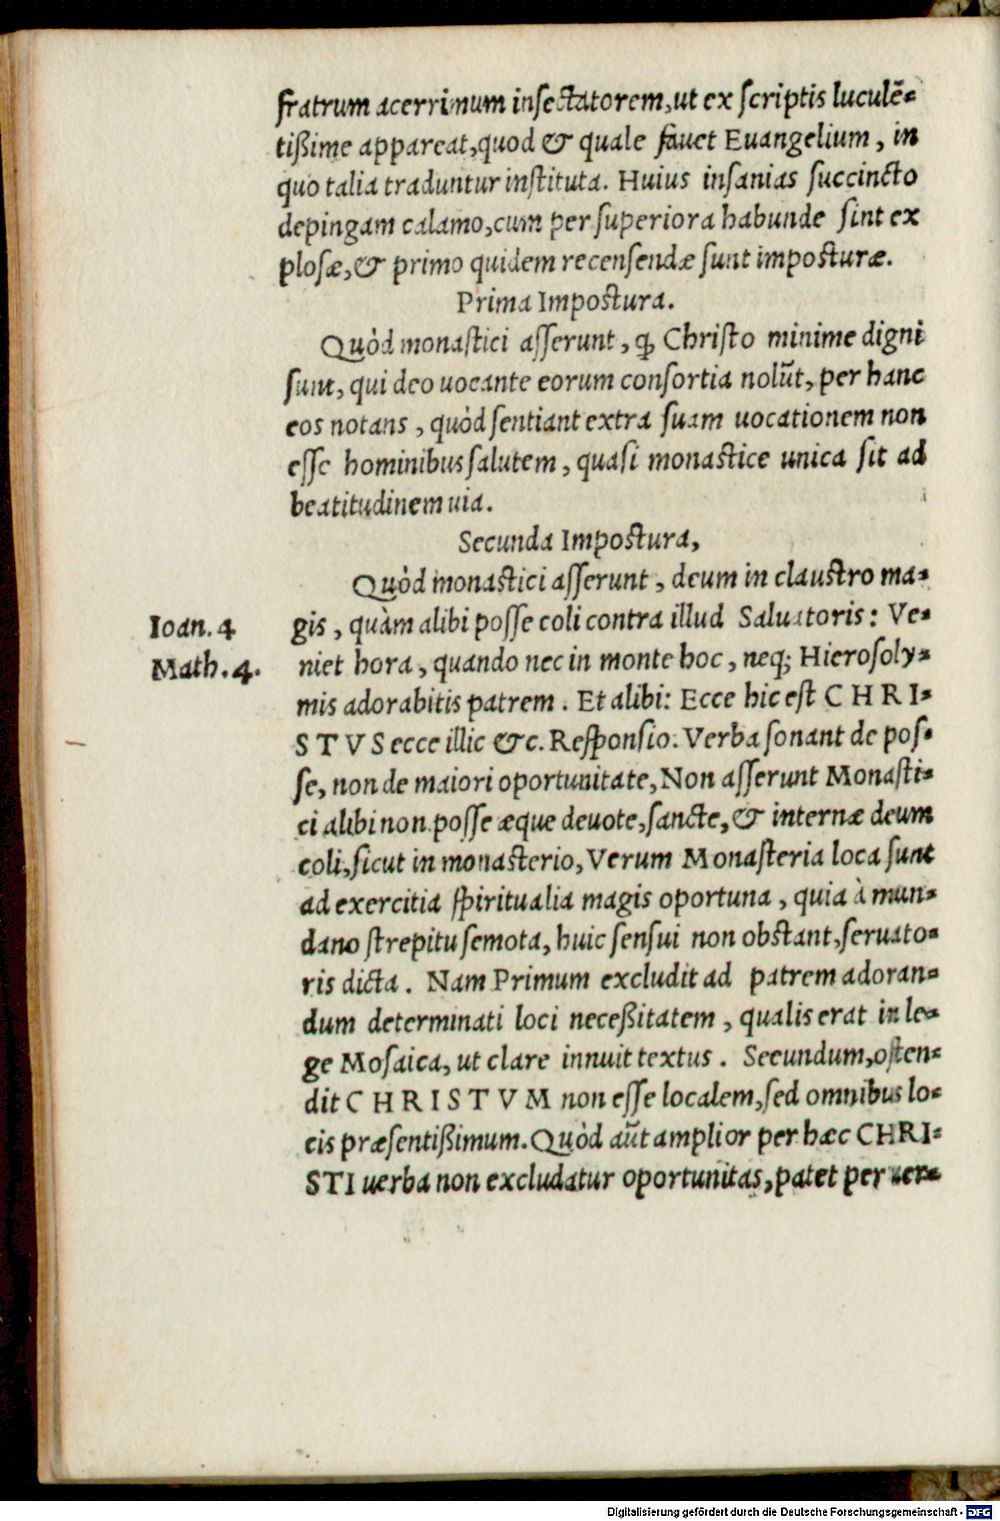 fratrum acerrimum insectatorem, ut ex scriptis luculē-
tißime appareat, quod & quale fauet Euangelium, in
quo talia traduntur instituta. Huius insanias succincto
depingam calamo, cum per superiora habunde sint ex
plosæ, & primo quidem recensendæ sunt imposturæ.
Prima Impostura.
Quòd monastici asserunt, ꝙ Christo minime digni
sunt, qui deo uocante eorum consortia nolūt, per hanc
eos notans, quòd sentiant extra suam uocationem non
esse hominibus salutem, quasi monastice unica sit ad
beatitudinem uia.
Secunda Impostura,
Quòd monastici asserunt, deum in claustro ma-
Ioan. 4
gis, quàm alibi posse coli contra illud Saluatoris: Ve-
Math. 4.
niet hora, quando nec in monte hoc, neq; Hierosoly-
mis adorabitis patrem. Et alibi: Ecce hic est CHRI-
STVS ecce illic &c. Responsio: Verba sonant de pos-
se, non de maiori oportunitate, Non asserunt Monasti-
ci alibi non posse æque deuote, sancte, & internæ deum
coli, sicut in monasterio, Verum Monasteria loca sunt
ad exercitia spiritualia magis oportuna, quia à mun-
dano strepitu semota, huic sensui non obstant, seruato-
ris dicta. Nam Primum excludit ad patrem adoran-
dum determinati loci neceßitatem, qualis erat in le-
ge Mosaica, ut clare innuit textus. Secundum, osten-
dit CHRISTVM non esse localem, sed omnibus lo-
cis præsentißimum. Quòd aūt amplior per hæc CHRI-
STI uerba non excludatur oportunitas, patet per uer-
Digitalisierung gefördert durch die Deutsche Forschungsgemeinschaft - DFG